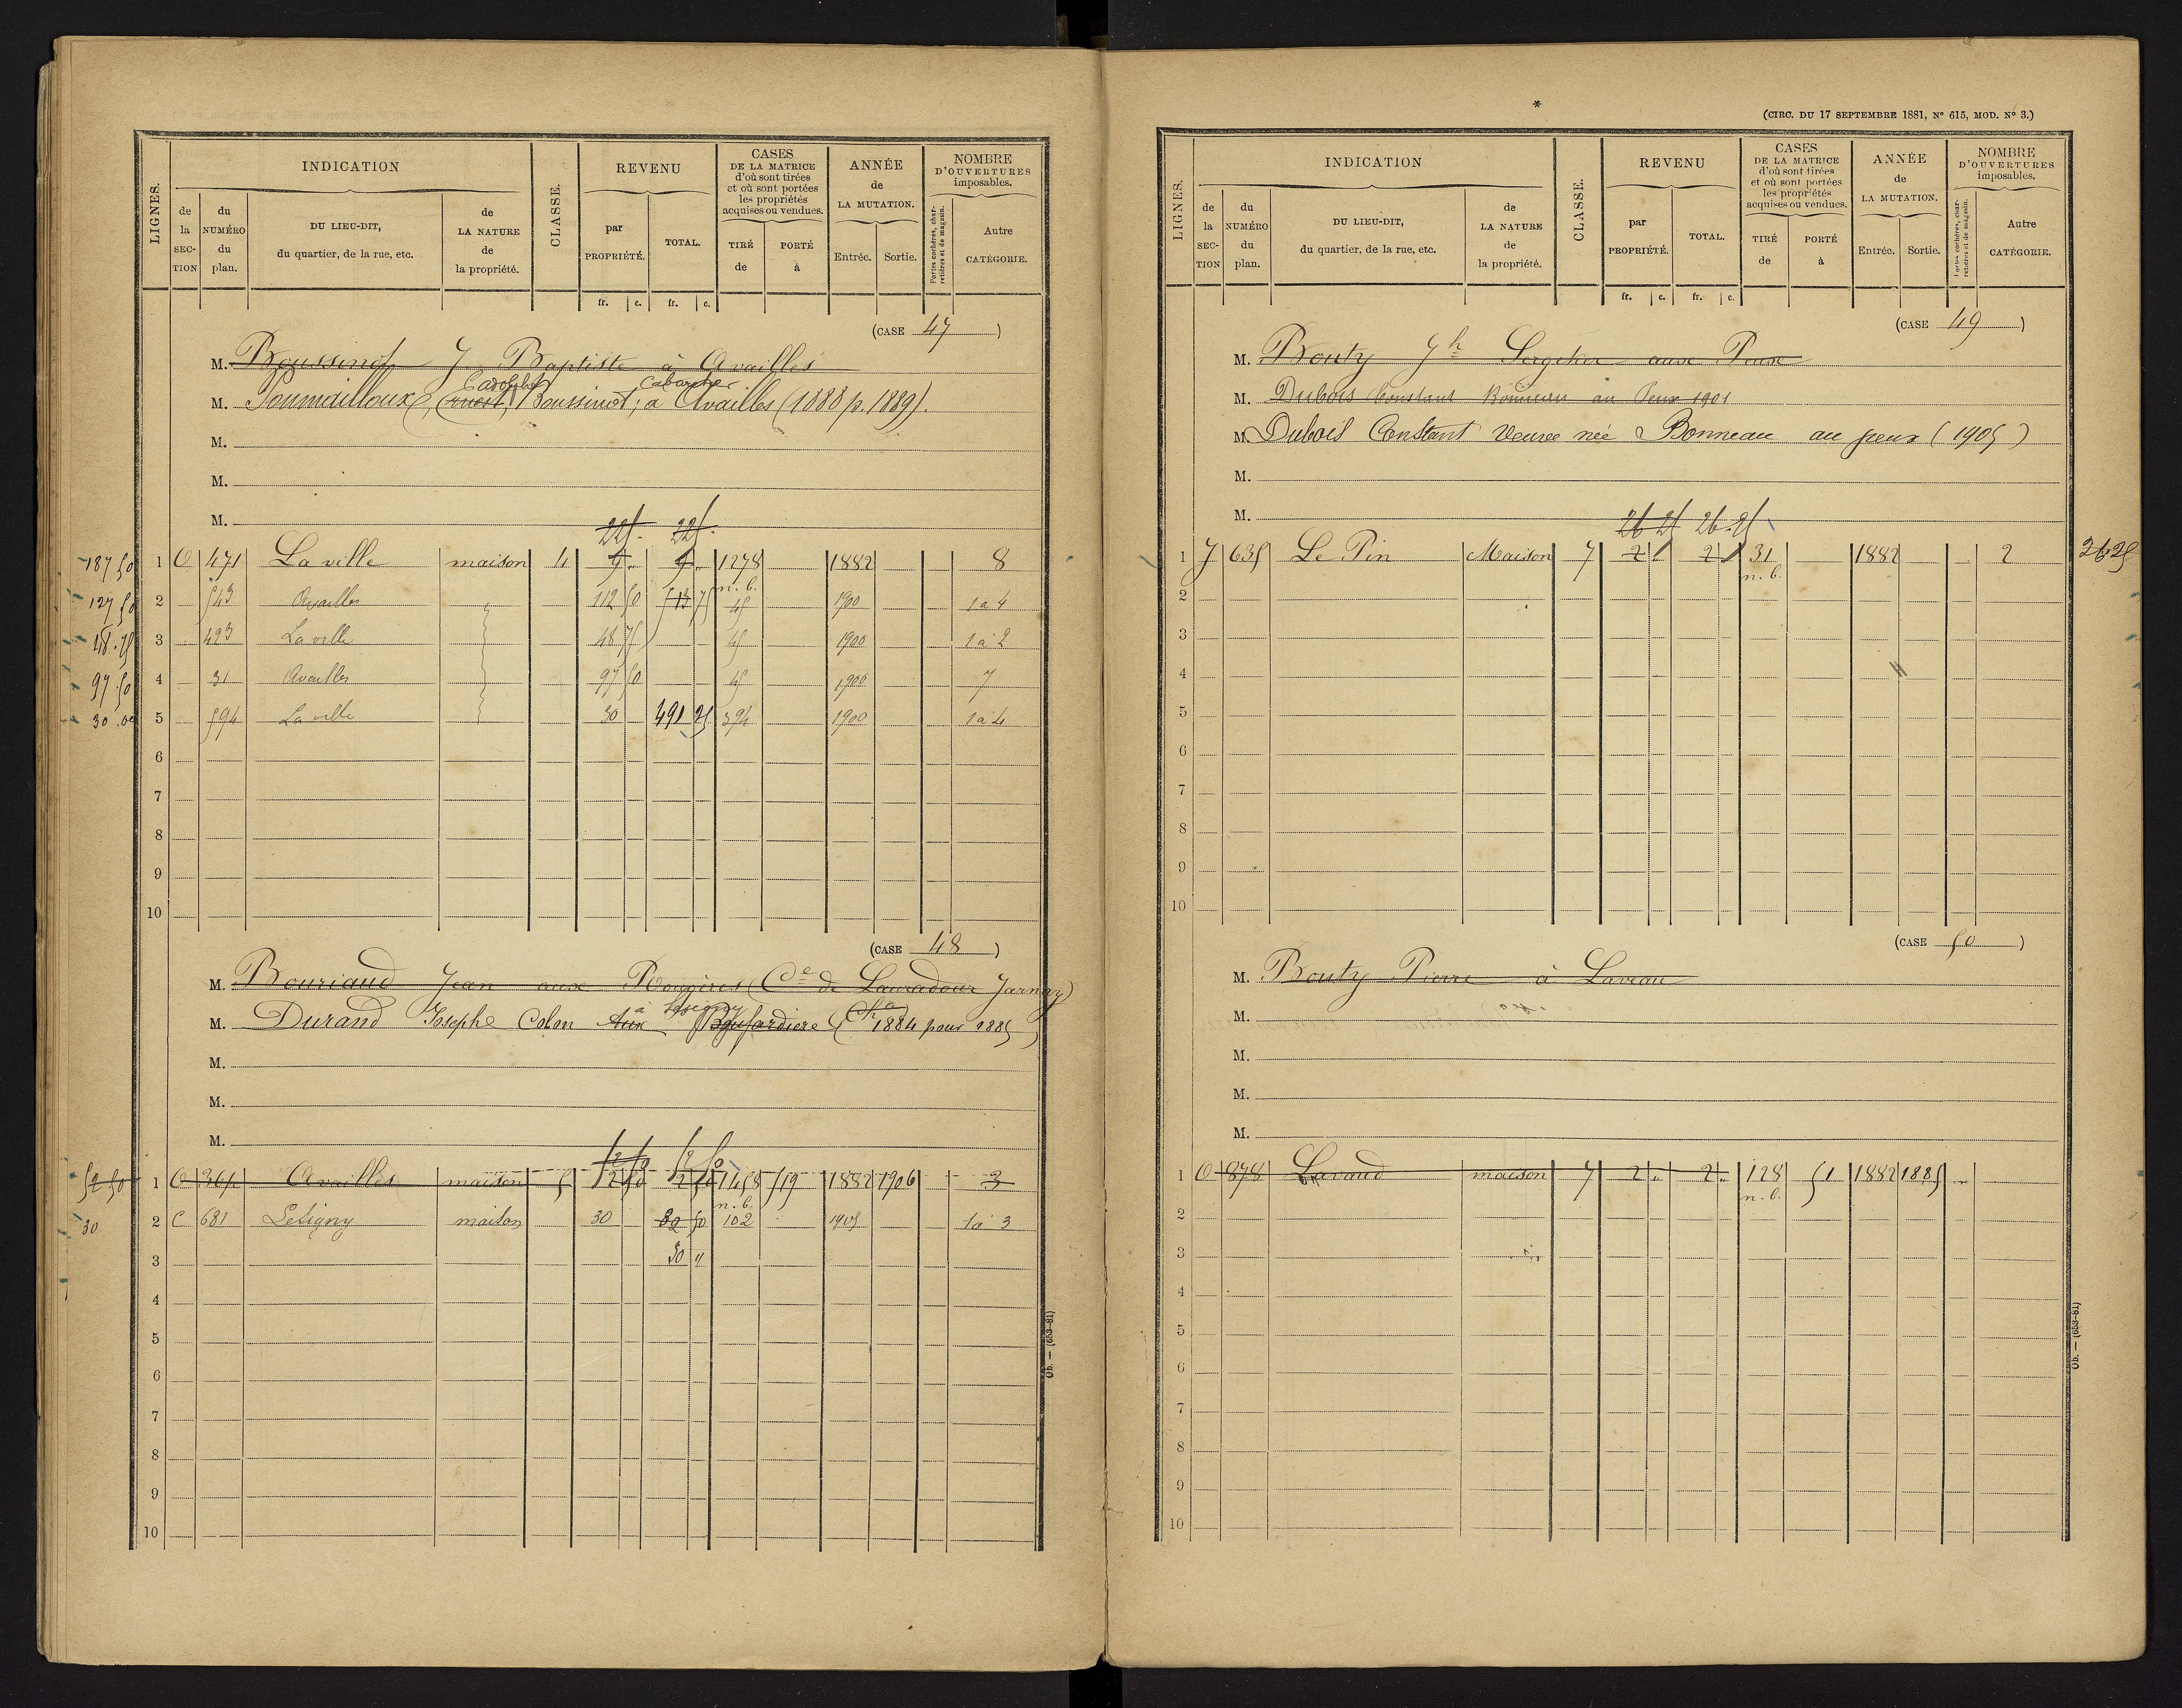 LIGNES.
INDICATION
CLASSE.
REVENU
CASES
DE LA MATRICE
d'où sont tirées
et où sont portées
les propriétés
acquises ou vendues.
ANNÉE
de
LA MUTATION.
NOMBRE
D'OUVERTURES
imposables.
de la SECTION
du NUMÉRO du plan.
DU LIEU-DIT,
du quartier, de la rue, etc.
de LA NATURE de la propriété.
par PROPRIÉTÉ.
TOTAL.
TIRÉ de
PORTÉ à
Entrée.
Sortie.
Portes cochères, charretières et de magasin.
Autre CATÉGORIE.
fr. c. fr. c.
(CASE 47 )
M. Boussinot J. Baptiste à Availles
Cabaretier
M. Poumailloux, Boussinot, à Availles (1888 p. 1889).
M.
M.
M.
225. 225.
187 50 1 O 471 La ville maison 4 9 " 9 " 1278 1882 8
n. b.
127 50 2 543 Availles 112 50 513 75 45 1900 1 à 4
48.75 3 423 La ville 48 75 45 1900 1 à 2
97.50 4 31 Availles 97 50 45 1900 7
30.00 5 594 La ville 30 491 25 394 1900 1 à 4
6
7
8
9
10
(CASE 48 )
M. Bouriaud Jean aux Rougères (Cne de Lauradour Jarnay)
à Lésigny
M. Durand Josephe Colon Aux (1884 pour 1885)
M.
M.
M.
52 50 52 50
52 50 1 O 364 Availles maison 5 2 50 2 50 1458 719 1882 1906 3
n. b.
30 2 C 681 Lésigny maison 30 82 50 102 1905 1 à 3
3 30 "
4
5
6
7
8
9
10
Ob. — (653-81)
*
(CIRC. DU 17 SEPTEMBRE 1881, N° 615, MOD. N° 3.)
LIGNES.
INDICATION
CLASSE.
REVENU
CASES
DE LA MATRICE
d'où sont tirées
et où sont portées
les propriétés
acquises ou vendues.
ANNÉE
de
LA MUTATION.
NOMBRE
D'OUVERTURES
imposables.
de la SECTION
du NUMÉRO du plan.
DU LIEU-DIT,
du quartier, de la rue, etc.
de LA NATURE de la propriété.
par PROPRIÉTÉ.
TOTAL.
TIRÉ de
PORTÉ à
Entrée.
Sortie.
Portes cochères, charretières et de magasin.
Autre CATÉGORIE.
fr. c. fr. c.
(CASE 49 )
M. Bouty Jh Sergetier aux Peux
M. Dubois Constant Bonneau au Peux 1901
M. Dubois Constant Veuve née Bonneau au peux (1905)
M.
M.
26 25 26.25
1 J 635 Le Pin Maison 7 2 1 2 1 31 1882 2 26.25
n. b.
2
3
4
5
6
7
8
9
10
(CASE 50 )
M. Bouty Pierre à Laveau
M.
M.
M.
M.
1 O 878 Lavaud maison 7 2 " 2 " 128 51 1882 1885
n. b.
2
3
4
5
6
7
8
9
10
Ob. — (653-81)